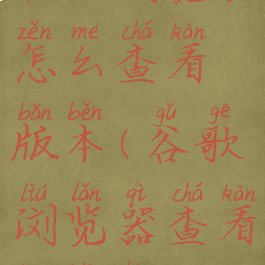 zěn me chá kàn
怎么查看
bǎn běn gǔ gē
版本（谷歌
liú lǎn qì chá kàn
浏览器查看